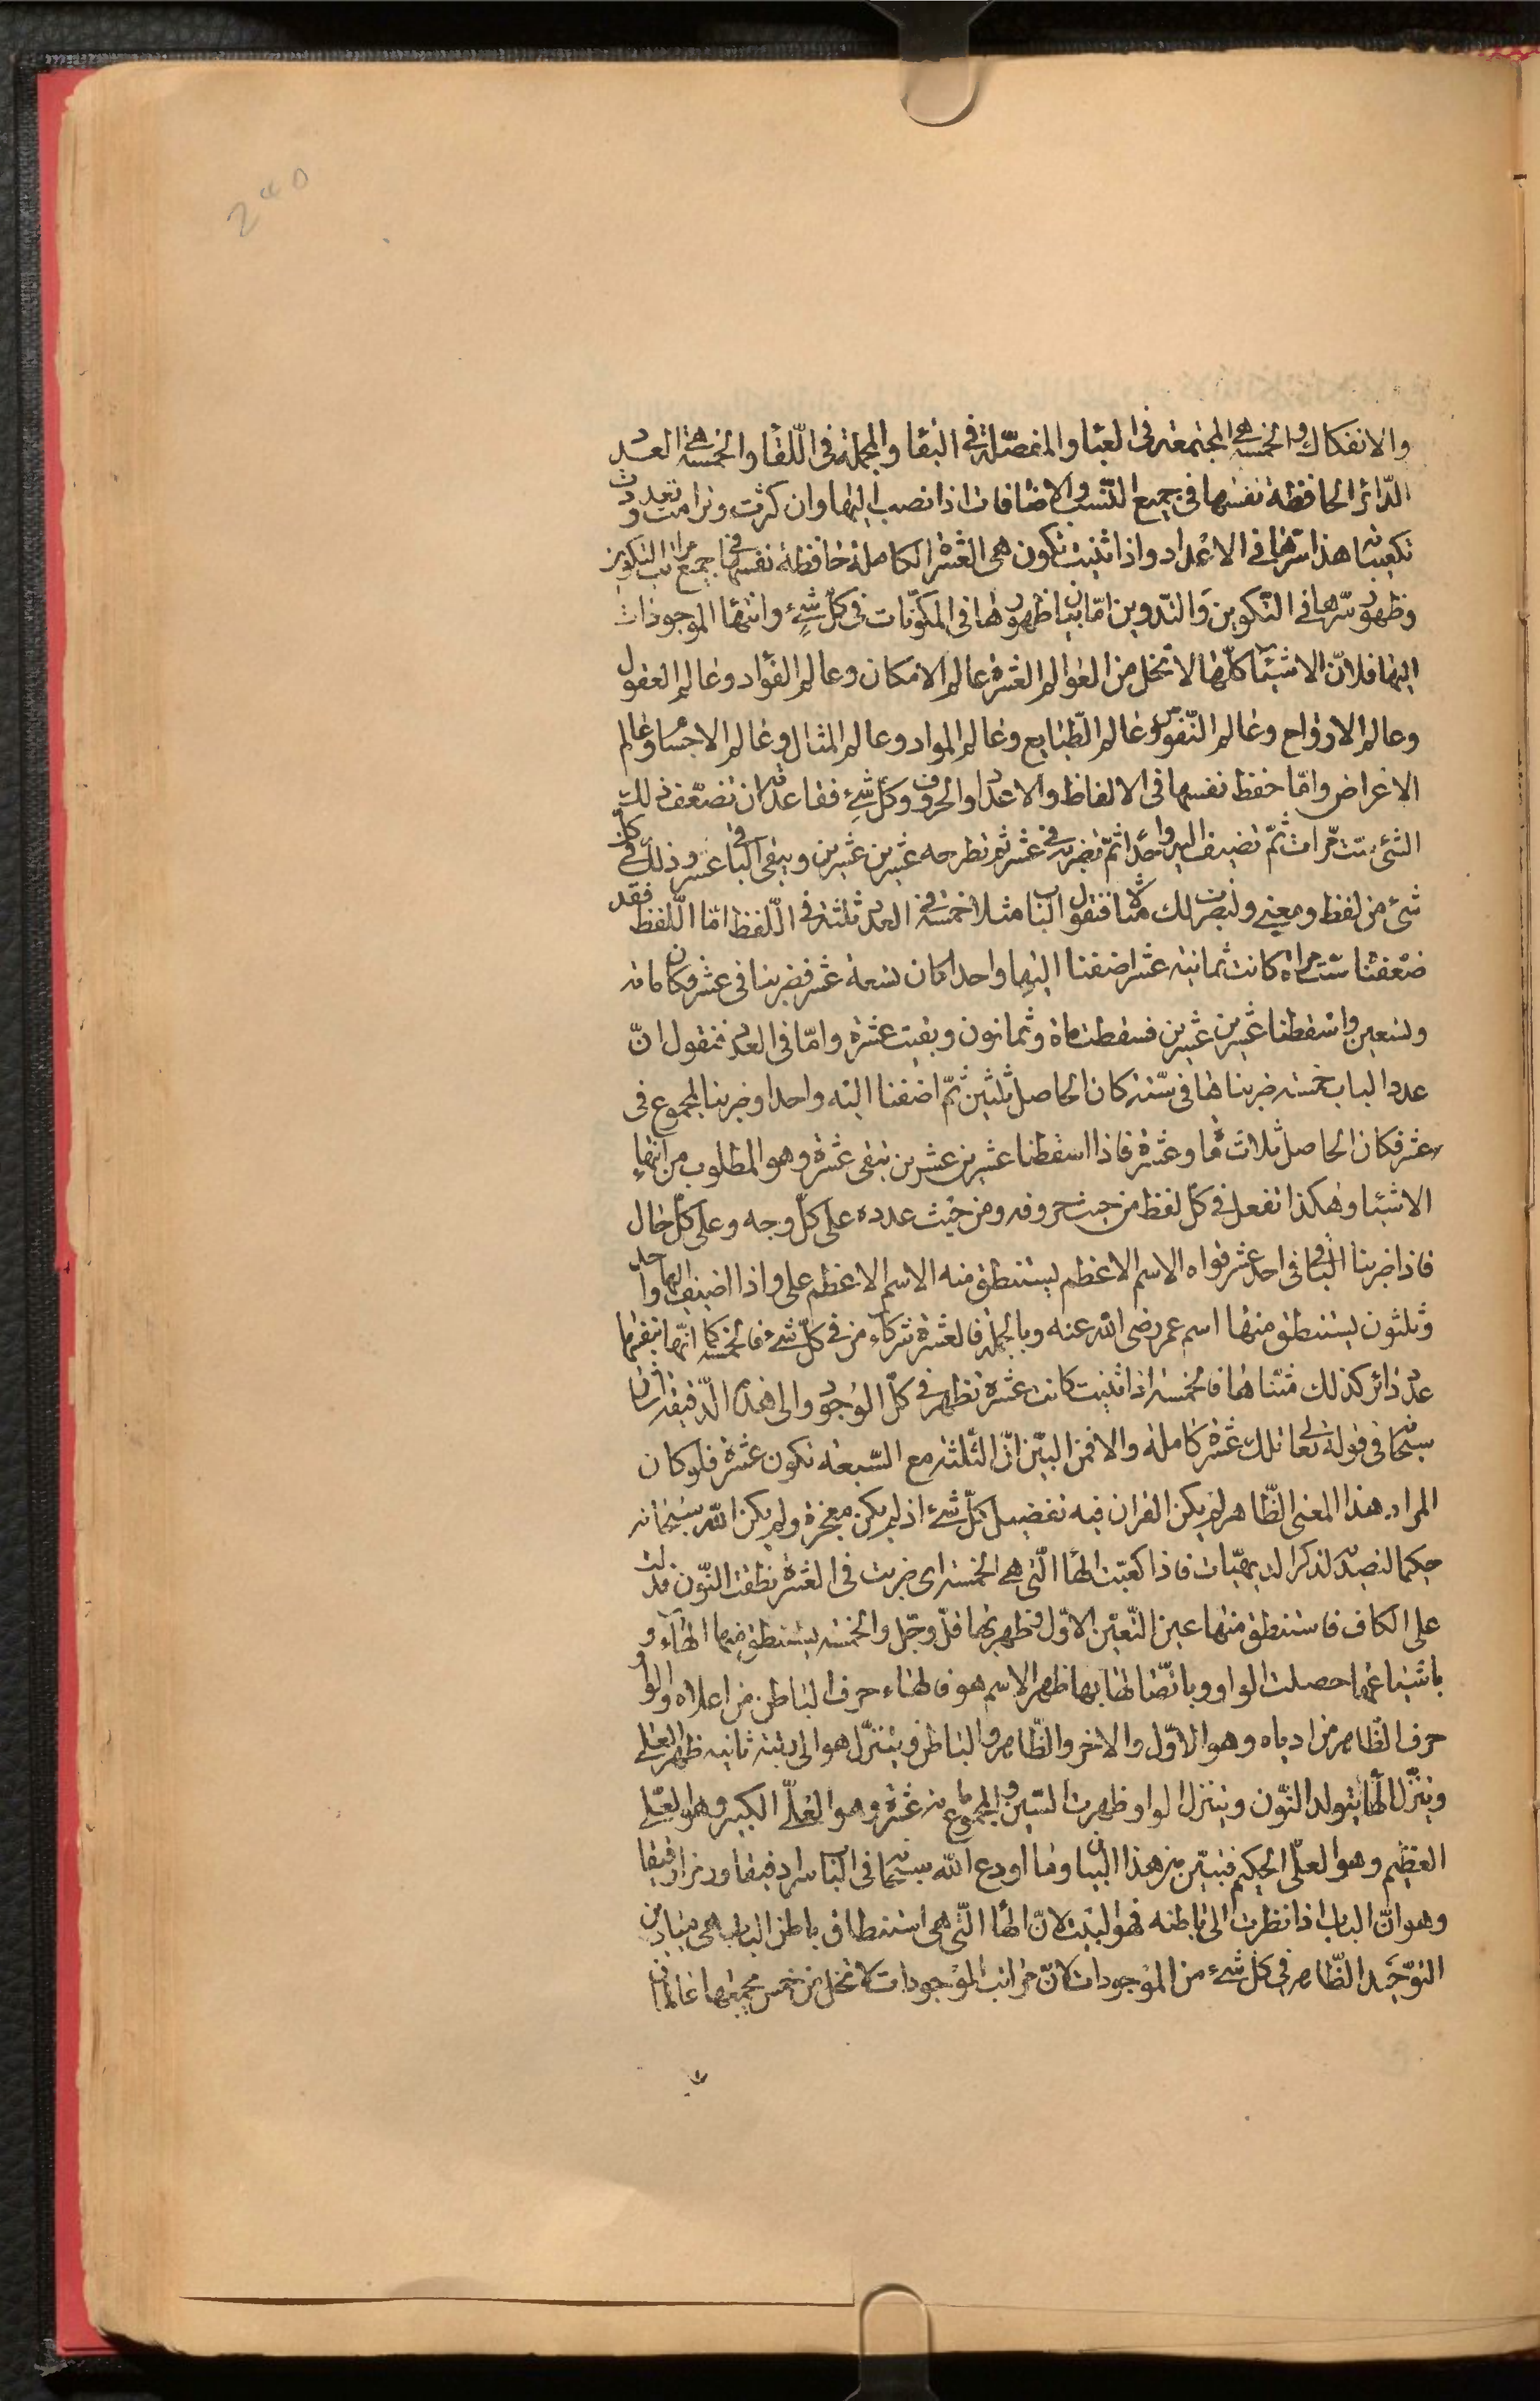 240
والانفكاك والخمسة هي المجتمعة في العباء والمفصّلة في البقاء والمجملة في اللقاء والخمسة هي العدد
الدّائر الحافظة نفسها في جميع النّسب والاضافات اذا نصب اليها وان كثرت وترامت وتعددت
تكعيباتها هذا سرّها في الاعداد واذا ثنّيت تكون هي العشرة الكاملة حافظة نفسها في جميع مراتب التكوين
وظهور سرّها في التكوين والتدوين امّا بيان ظهورها في المكوّنات في كلّ شيء وانتهاء الموجودات
اليها فلانّ الاشياء كلّها لا تخلو من العوالم العشرة عالم الامكان وعالم الفؤاد وعالم العقول
وعالم الارواح وعالم النّفوس وعالم الطّبايع وعالم المواد وعالم المثال وعالم الاجسام وعالم
الاعراض وامّا حفظ نفسها في الالفاظ والاعداد والحروف وكلّ شيء فقاعدته ان تضعّف ذلك
الشيء ستّ مرّات ثمّ تضيف اليه واحدا ثمّ تضربه في عشر ثم تطرحه عشرين عشرين ويبقى الباقي عشر وذلك في كلّ
شيء من لفظ ومعنى ولنضرب لك مثالا فنقول الباب مثلا خمسة في العدد ثلثة في اللّفظ امّا اللّفظ فقد
ضعّفنا ستّ مراة كانت ثمانية عشر اضفنا اليها واحدا كان تسعة عشر فضربنا في عشر وكان مائة
وتسعين واسقطنا عشرين عشرين فسقطت ماة وثمانون وبقيت عشرة وامّا في العدد فنقول انّ
عدد الباب خمسة ضربناها في ستّة كان الحاصل ثلثين ثمّ اضفنا اليه واحدا وضربنا المجموع في
عشر فكان الحاصل ثلاث مأة وعشرة فاذا اسقطنا عشرين عشرين تبقى عشرة وهو المطلوب من انتهاء
الاشياء وهكذا تفعل في كلّ لفظ من حيث حروفه ومن حيث عدده على كلّ وجه وعلى كلّ حال
فاذا ضربنا الباقي في احد عشر قواه الاسم الاعظم يستنطق منه الاسم الاعظم علي واذا اضيف اليها واحد
وثلثون يستنطق منها اسم عمر رضى الله عنه وبالجملة فالعشرة من في كلّ شيء فالخمسة كما انّها بنفسها
عدد دائر كذلك مثناها فالخمسة اذا ثنّيت كانت عشرة تظهر في كلّ الوجود والى هذه الدّقيقة اشار
سبحانه في قوله تعالى تلك عشرة كاملة والا فمن البيّن انّ الثّلثة مع السّبعة تكون عشرة فلو كان
المراد هذا المعنى الظّاهر لم يكن القران فيه تفصيل كلّ شيء اذ لم يكن معجزة ولم يكن الله سبحانه
حكيما لتصدّيه لذكر البديهيّات فاذا كعّبت الهاء الّتي هي الخمسة اي ضربت في العشرة نطقت النّون فدلّت
على الكاف فاستنطق منها عين التّعيّن الاوّل وظهر بها قلّ وجلّ والخمسة يستنطق منها الهاء و
باشباعها حصلت الواو وباتّصالها بها ظهر الاسم هو فالهاء حرف الباطن من اعلاه والواو
حرف الظّاهر من ادناه وهو الاوّل والاخر والظّاهر والباطن ويتنزّل هو الى رتبة ثانية ظهر العلي
وبتنزّل الهاء يتولد النّون وبتنزل الواو ظهرت السّين والمجموع مائة عشرة وهو العليّ الكبير وهو العليّ
العظيم وهو العليّ الحكيم فتبيّن من هذا البيان وما اودع الله سبحانه في الباب سرا دقيقا ورمزا رقيقا
وهو انّ الباب اذا نظرت الى باطنه فهو البيت لانّ الهاء الّتي هي استنطاق باطن الباب هي ميادين
التوحيد الظّاهر في كلّ شيء من الموجودات لانّ مراتب الموجودات لا تخلو من خمس يجمعها عالمان